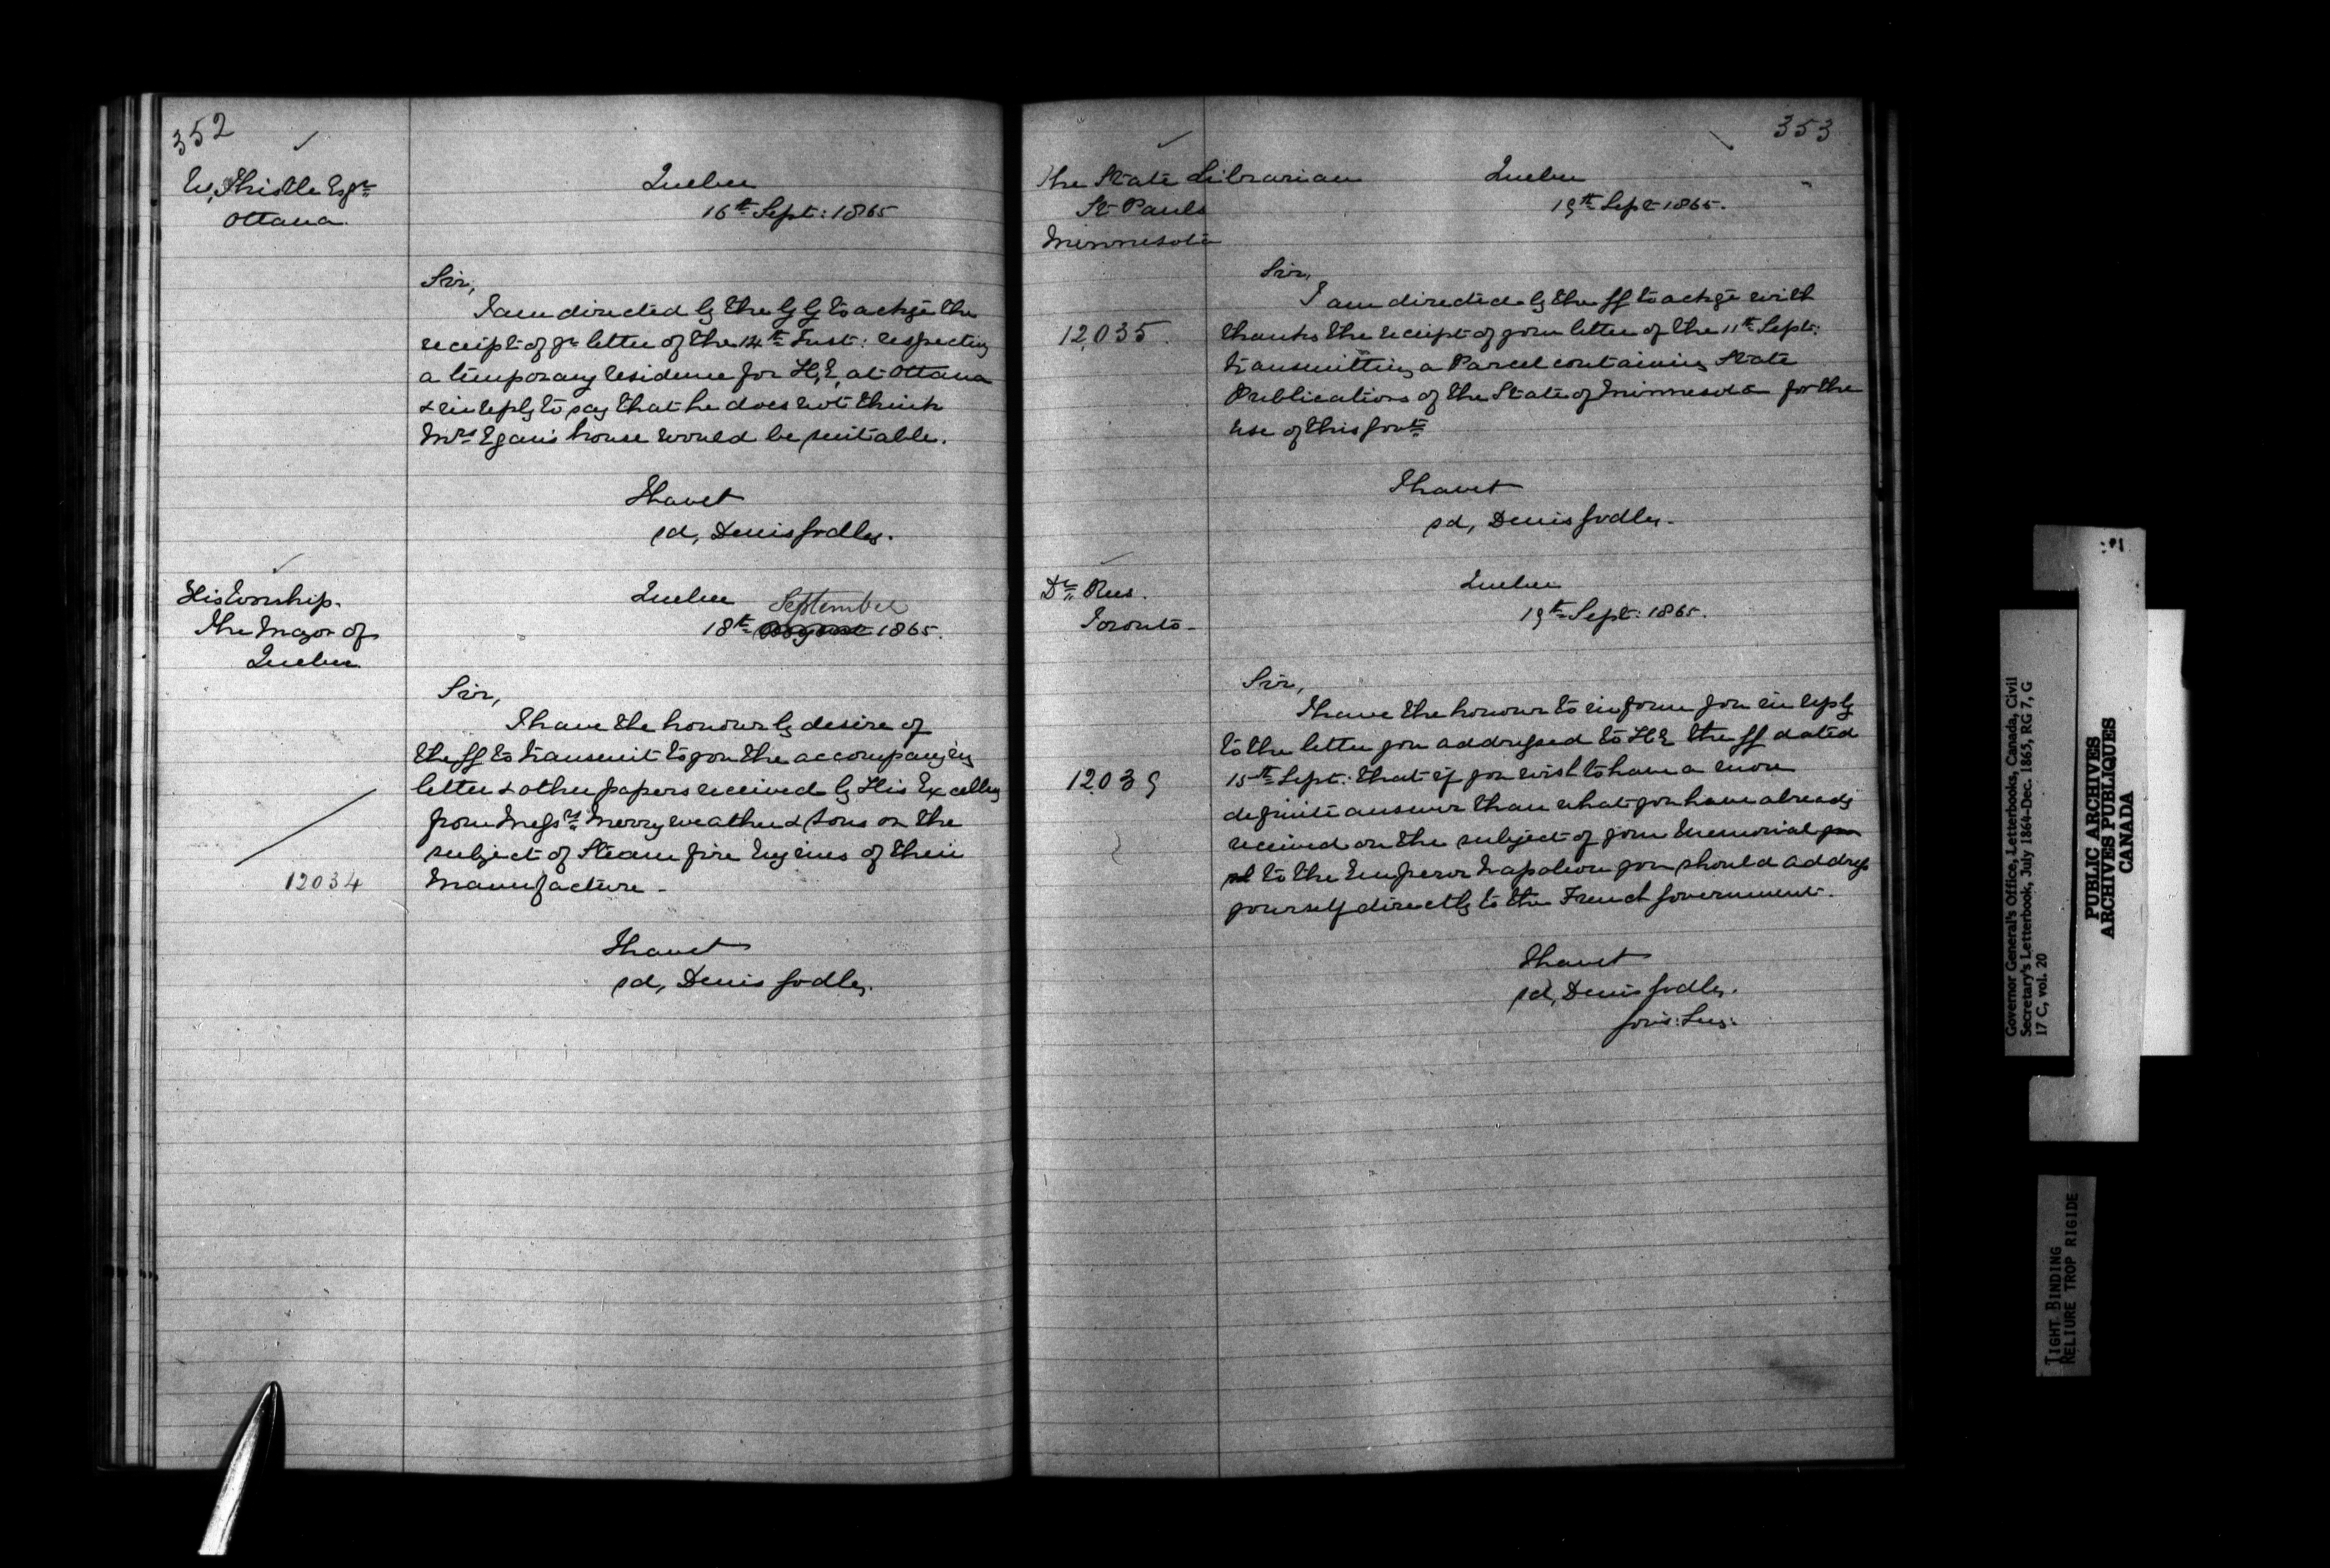 352
W, Thistle Esqre
Ottawa.
Quebec
16th Sept: 1865
Sir,
I am directed by the GG to ackge the
receipt of yr letter of the 14th Inst: respecting
a temporary residence for H,E, at Ottawa
& in reply to say that he does not think
Mrs Egan's house would be suitable.
I have &
sd, Denis Godley.
His Worship.
The Mayor of
Quebec
Quebec September
18th August 1865.
Sir,
I have the honour by desire of
the GG to transmit to you the accompanying
letter & other papers received by His Excellcy
from Messrs Merryweather & Sons on the
subject of Steam fire Engines of their
12034
Manufacture -
I have &
sd, Denis Godley.
353
The State Librarian
St Pauls
Minnesota
Quebec
19th Sept 1865.
Sir,
I am directed by the GG to ackge with
12,035.
thanks the receipt of your letter of the 11th Sept:
transmitting a Parcel containing State
Publications of the State of Minnesota for the
use of this Govt
I have &
sd, Denis Godley -
Dr Rees.
Toronto -
Quebec
19th Sept: 1865.
Sir,
I have the honour to inform you in reply
to the letter you addressed to H E the GG dated
12039
15th Sept: that if you wish to have a more
definite answer than what you have already
received on the subject of your Memorial
to the Emperor Napoleon you should address
yourself directly to the French Government.
I have &
sd, Denis Godley.
Gov's: Secy.
Governor General's Office, Letterbooks, Canada, Civil
Secretary's Letterbook, July 1864-Dec. 1865, RG 7, G
17 C, vol. 20
PUBLIC ARCHIVES
ARCHIVES PUBLIQUES
CANADA
TIGHT BINDING
RELIURE TROP RIGIDE